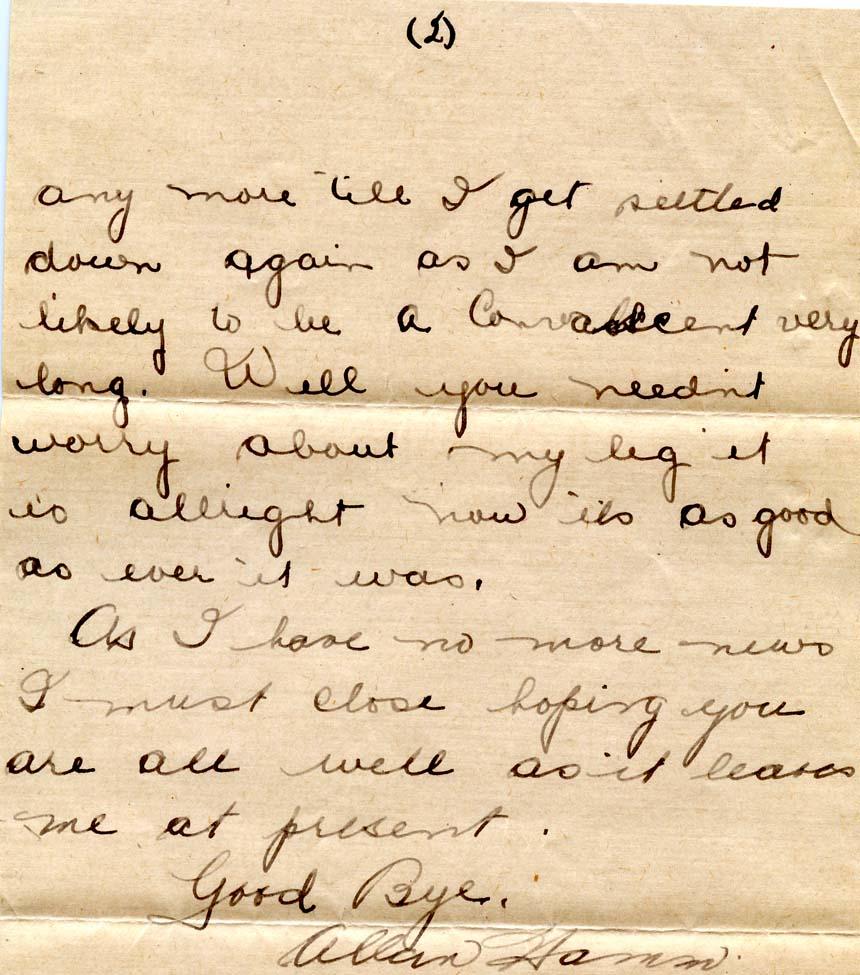 (2)
any more till I get settled
down again as I am not
likely to be a Convalescent very
long. Well you neednt
worry about my leg it
is allright now its as good
as ever it was.
As I have no more news
I must close hoping you
are all well as it leaves
me at present.
Good Bye.
Allan Hamm.